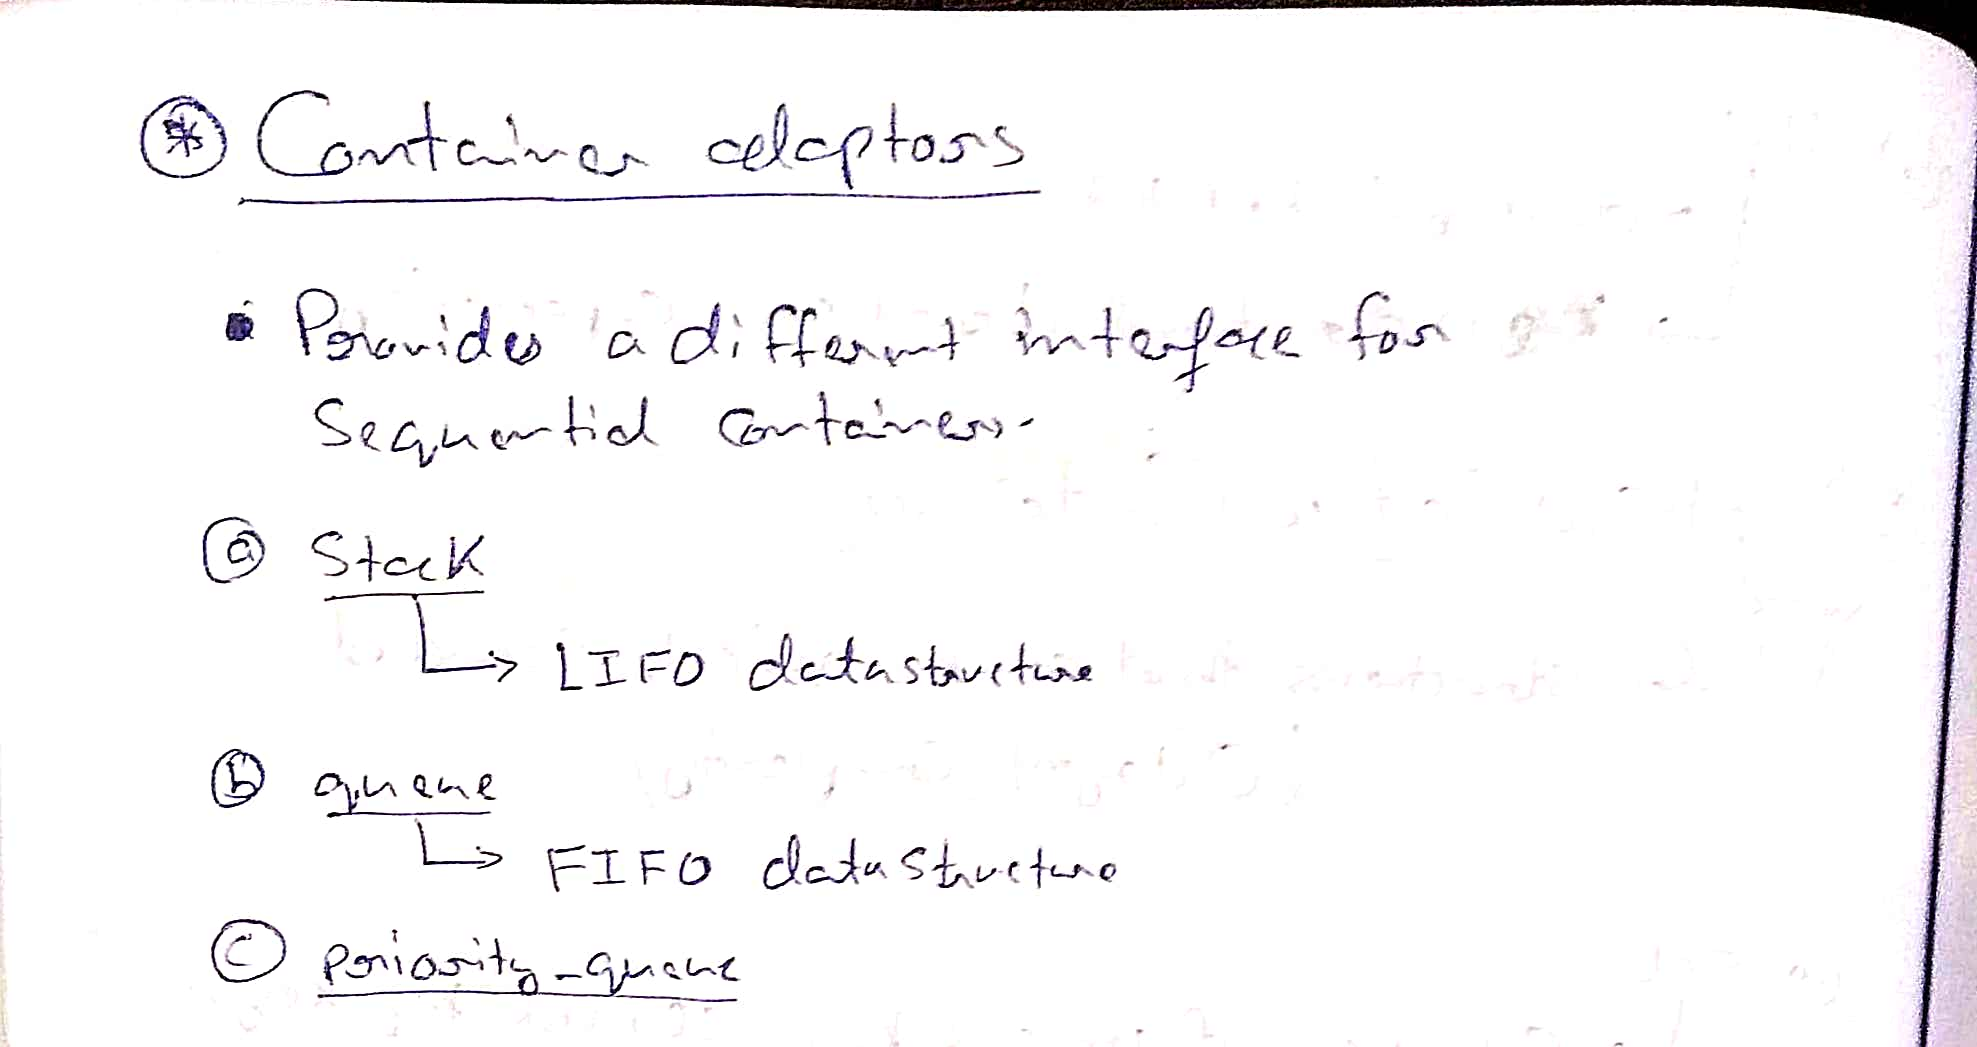 * Container adaptors
• Provides a different interface for
Sequential containers.
a Stack
↳ LIFO datastructure
b queue
↳ FIFO data structure
c priority_queue